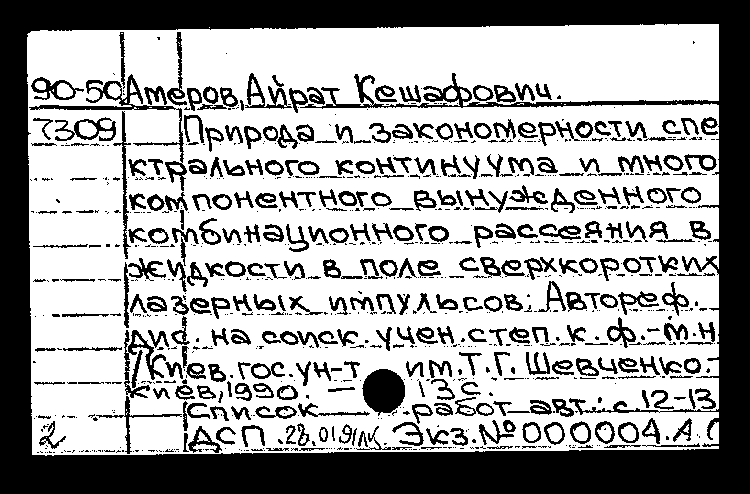 90-50 Амеров, Айрат Кешафович.
7309 Природа и закономерности спе
ктрального континуума и много
компонентного вынужденного
комбинационного рассеяния в
жидкости в поле сверхкоротких
лазерных импульсов: Автореф.
дис. на соиск. учен. степ. к. ф.-м.н
/Киев. гос. ун-т им. Т.Г. Шевченко.-
Киев, 1990. — 13 с.
Список работ авт.: с 12-13
2 ДСП. 28.01.91 Экз. № 000004. А.